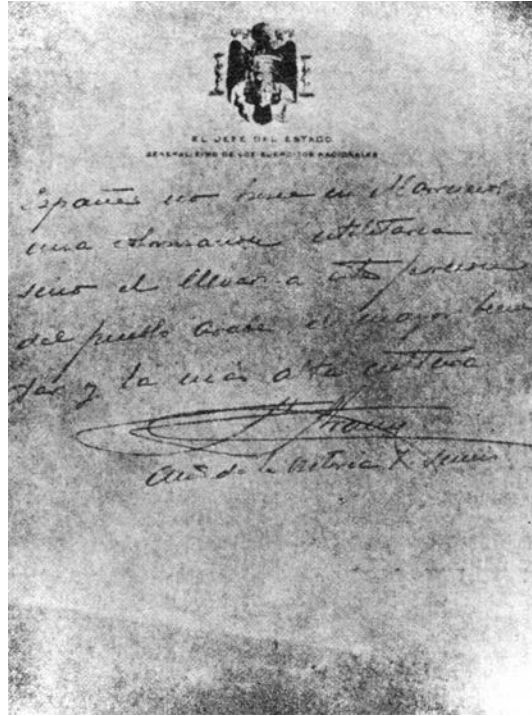 EL JEFE DEL ESTADO
GENERALISIMO DE LOS EJERCITOS NACIONALES
España no tiene en Marruecos
una utilitaria
sino el llevar a esta porcion
del pueblo arabe el mayor bienes
tar y la más alta cultura
F Franco
Año de la Victoria